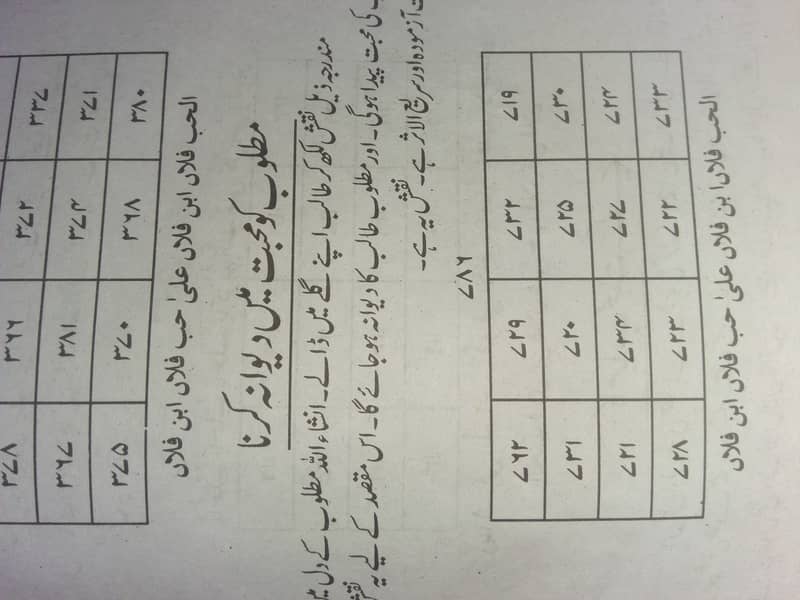 ۳۳۷ ۳۷۲ ۳۶۶ ۳۷۸
۳۷۱ ۳۷۴ ۳۸۱ ۳۶۷
۳۸۰ ۳۶۸ ۳۷۰ ۳۷۵
الحب فلاں ابن فلاں علیٰ حب فلاں ابن فلاں
مطلوب کو محبت میں دیوانہ کرنا
مندرجہ ذیل نقش لکھ کر طالب اپنے گلے میں ڈالے۔ انشاء اللہ مطلوب کے دل میں
کی محبت پیدا ہوگی۔ اور مطلوب طالب کا دیوانہ ہو جائے گا۔ اس مقصد کے لیے یہ نقش
آزمودہ اور سریع الاثر ہے۔ نقش یہ ہے۔
۷۸۶
۷۱۹ ۷۳۲ ۷۲۹ ۷۶۲
۷۳۰ ۷۲۵ ۷۲۰ ۷۳۱
۷۲۴ ۷۲۷ ۷۳۴ ۷۲۱
۷۳۳ ۷۲۲ ۷۲۳ ۷۲۸
الحب فلاں ابن فلاں علیٰ حب فلاں ابن فلاں